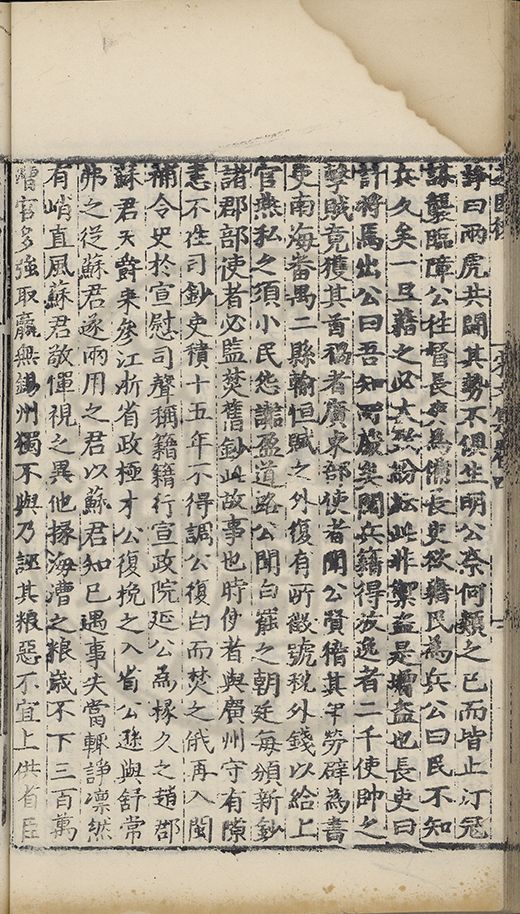 諍曰兩虎共鬬其勢不俱生明公奈何類之已而皆止汀寇
謀襲臨障公徃督長吏為備長吏欲籍民為兵公曰民不知
兵久矣一旦籍之必大紛紜此非禦盗是增盗也長吏曰
計將焉出公曰吾知所蔵矣閲兵籍得放逸者二千使帥之
擊賊竟獲其酋禍者廣東部使者聞公賢猶其年勞辟為書
吏南海番禺二縣輸恒賦之外復有所歛號税外錢以給上
官燕私之須小民怨讟盈道路公聞白罷之朝廷每頒新鈔
諸郡部使者必監焚舊鈔此故事也時使者與廣州守有隙
恚不徃司鈔吏積十五年不得調公復白而焚之俄再入閩
補令史於宣慰司聲稱籍籍行宣政院延公為掾久之趙郡
蘇君天爵来叅江浙省政極才公復挽之入省公遜與舒常
弗之從蘇君遂兩用之君以蘇君知已遇事失當輙諍凛然
有峭直風蘇君敬憚視之異他掾海漕之粮歲不下三百萬
漕官多強取贏無錫州獨不與乃誣其粮惡不宜上供省臣